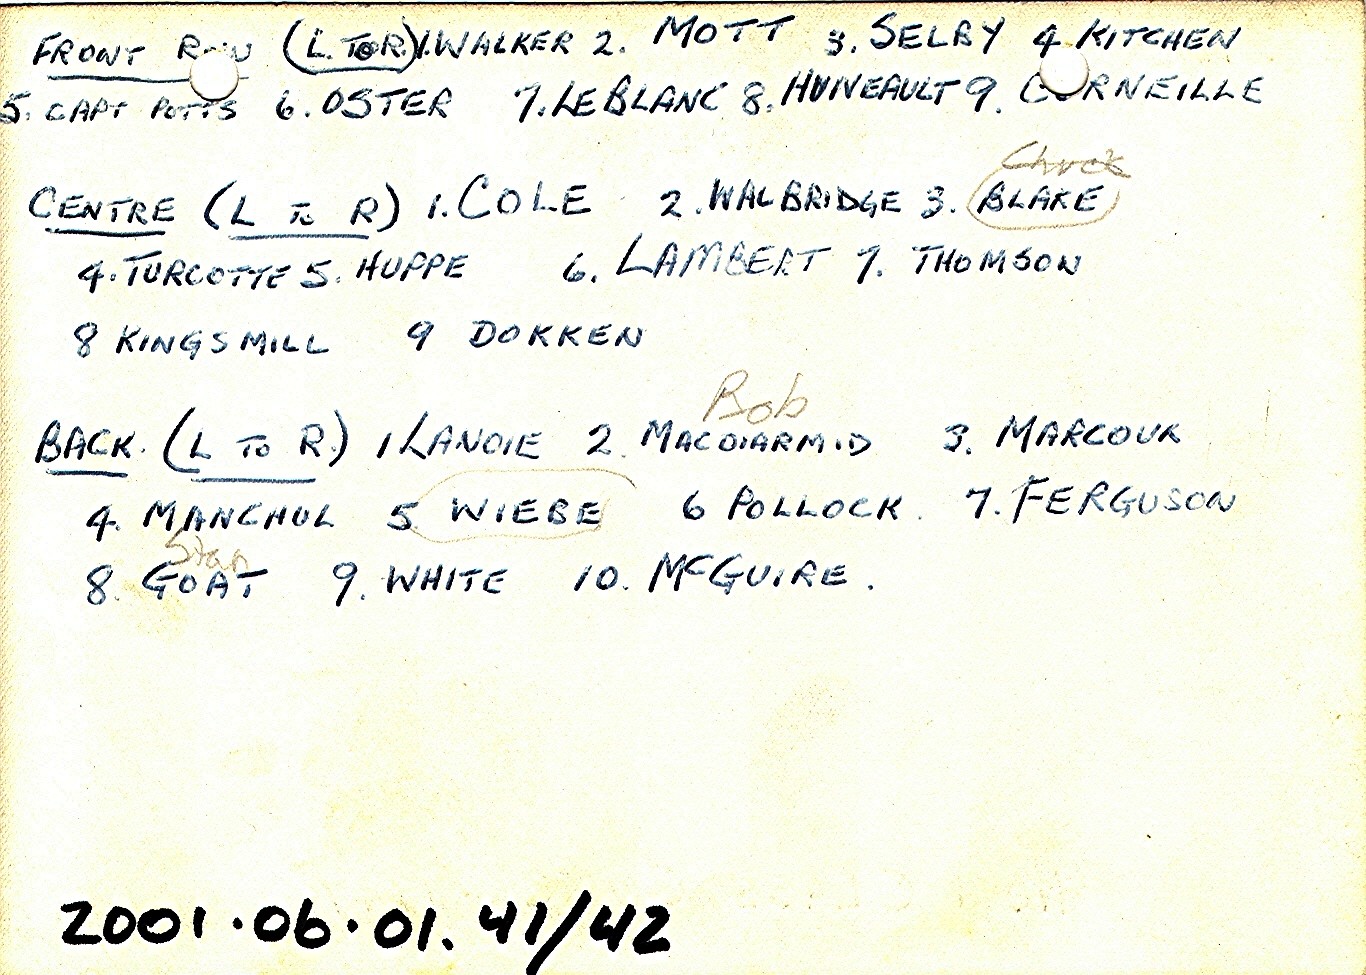 FRONT ROW (L TO R) 1. WALKER 2. MOTT 3. SELBY 4 KITCHEN
5. CAPT POTTS 6. OSTER 7. LEBLANC 8. HUNEAULT 9. CORNEILLE
Chuck
CENTRE (L TO R) 1. COLE 2. WALBRIDGE 3. BLAKE
4. TURCOTTE 5. HUPPE 6. LAMBERT 7. THOMSON
8 KINGSMILL 9 DOKKEN
Bob
BACK. (L TO R) 1 LANOIE 2. MACDIARMID 3. MARCOUX
4. MANCHUL 5 WIEBE 6 POLLOCK. 7. FERGUSON
Stan
8. GOAT 9. WHITE 10. McGUIRE.
2001.06.01.41/42